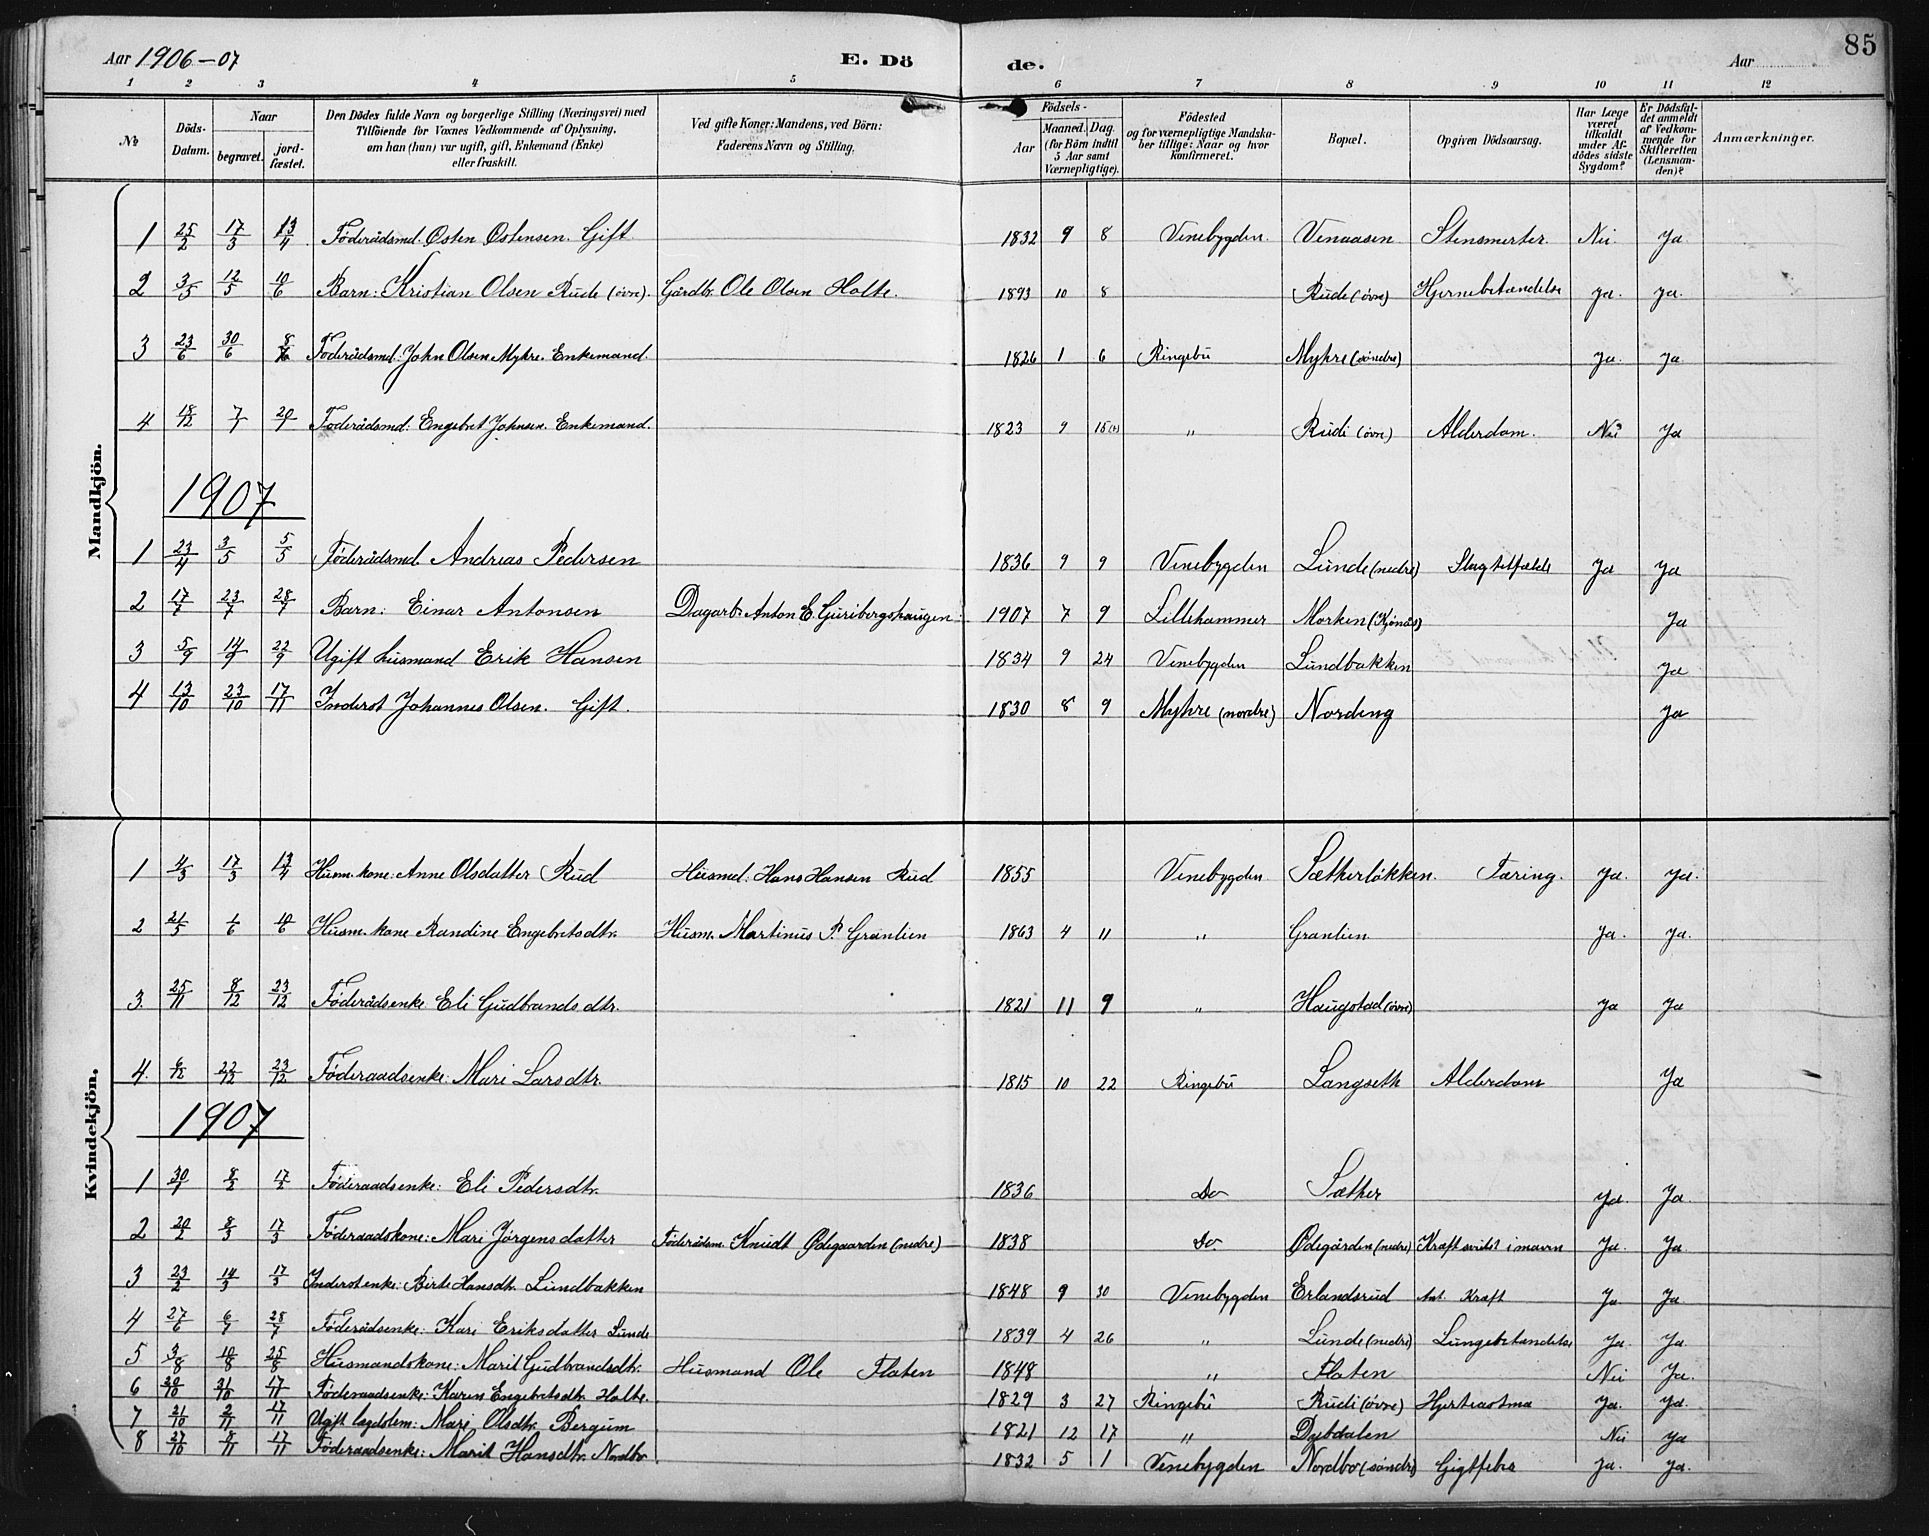 85
Aar 1906-07 E. Dö de. Aar
1 2 3 4 5 6 7 8 9 10 11 12
No. Döds-Datum. Naar begravet. jord-fæstet. Den Dödes fulde Navn og borgerlige Stilling (Næringsvei) med Tilföiende for Voxnes Vedkommende af Oplysning, om han (hun) var ugift, gift, Enkemand (Enke) eller fraskilt. Ved gifte Koner: Mandens, ved Börn: Faderens Navn og Stilling. Födsels- Aar Maaned. Dag. (for Börn indtil 5 Aar samt Værnepligtige). Födested og for værnepligtige Mandska-ber tillige: Naar og hvor konfirmeret. Bopæl. Opgiven Dödsaarsag. Har Læge været tilkaldt under Af-dödes sidste Sygdom? Er Dödsfal-det anmeldt af Vedkom-mende for Skifteretten (Lensman-den)? Anmærkninger.
Mandkjön.
1 25/2 17/3 13/4 Föderådsmd. Østen Østensen. Gift 1832 9 8 Venebygden. Venaasen Stensmerter. Nei. Ja
2 3/5 12/5 10/6 Barn: Kristian Olsen Rude (övre). Gårdbr. Ole Olsen Holte. 1893 10 8 Rude (övre) Hjernebetændelse Ja. Ja.
3 23/6 30/6 Föderådsmd. John Olsen Myhre. Enkemand. 1826 1 6 Ringebu Myhre (söndre) Ja. Ja
4 18/12 7/1 20/1 Föderådsmd: Engebret Johnsen. Enkemand. 1823 9 15 " Rudi (övre) Alderdom. Nei Ja
1907
1 23/4 3/5 5/5 Föderådsmd Andreas Pedersen 1836 9 9 Venebygden Lunde (nedre) Slagtilfælde Ja Ja
2 17/7 23/7 28/7 Barn: Einar Antonsen Dagarb. Anton E. Guribergshaugen 1907 7 9 Lillehammer Morken (Kjönås) Ja
3 5/9 14/9 22/9 Ugift husmand Erik Hansen 1834 9 24 Venebygden Lundbakken Ja
4 13/10 23/10 17/11 Inderst Johannes Olsen. Gift. 1830 8 9 Myhre (nordre) Nording Ja
Kvindekjön.
1 4/3 17/3 13/4 Husm. kone: Anne Olsdatter Rud Husmd: Hans Hansen Rud 1855 Venebygden Sætherløkken. Tæring. Ja. Ja.
2 21/5 1/6 10/6 Husm. kone Randine Engebretsdtr. Husm. Martinus P. Granlien 1863 4 11 " Granlien Ja. Ja.
3. 25/11 8/12 23/12 Föderådsenke Eli Gudbrandsdtr. 1821 11 9 " Haugstad (övre) Ja Ja
4. 6/12 22/12 23/12 Föderaadsenke: Mari Larsdtr. 1815 10 22 Ringebu Langseth Alderdom Ja
1907
1 30/1 8/2 17/2 Föderaadsenke: Eli Pedersdtr. 1836 Do Sæther Ja. Ja
2 20/2 8/3 17/3 Föderaadskone: Mari Jörgensdatter Föderådsm. Knudt Ödegaarden (nedre) 1838 Do. Ödegården (nedre) Kræftsvulst i maven Ja. Ja.
3 23/2 14/3 17/3 Inderstenke: Birte Hansdtr. Lundbakken 1848 9 30 Venebygden Erlandsrud Ant. Kræft Ja Ja
4 27/6 6/7 28/7 Föderådsenke: Kari Eriksdatter Lunde 1839 4 26 " Lunde (nedre) Lungebetændelse Ja. Ja.
5 3/8 10/8 25/8 Husmandskone: Marit Gudbrandsdtr. Husmand Ole Flaten 1848 " Flaten Nei Ja.
6 20/10 31/10 17/11 Föderaadsenke: Karen Engebretsdtr. Holte. 1829 3 27 Ringebu Rudi (övre) Hjerteastma Ja. Ja.
7 21/10 2/11 17/11 Ugift lægdslem: Mari Olsdtr. Bergum 1821 12 17 " Dybdalen Nei Ja
8 27/10 8/11 17/11 Föderaadsenke: Marit Hansdtr. Nordbo. 1832 5 1 Venebygden Nordbo (söndre) Gigtfeber Ja. Ja.